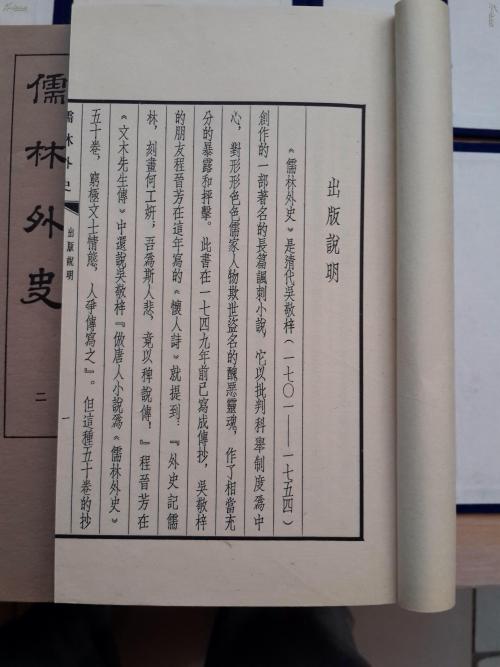 出版說明
《儒林外史》是清代吳敬梓（一七〇一——一七五四）
創作的一部著名的長篇諷刺小說，它以批判科舉制度爲中
心，對形形色色儒家人物欺世盜名的醜惡靈魂，作了相當充
分的暴露和抨擊。此書在一七四九年前已寫成傳抄，吳敬梓
的朋友程晉芳在這年寫的《懷人詩》就提到：『外史記儒
林，刻畫何工妍，吾爲斯人悲，竟以稗說傳！』程晉芳在
《文木先生傳》中還說吳敬梓『倣唐人小說爲《儒林外史》
五十卷，窮極文士情態，人爭傳寫之』。但這種五十卷的抄
儒林外史
出版說明
一
儒林外史
二